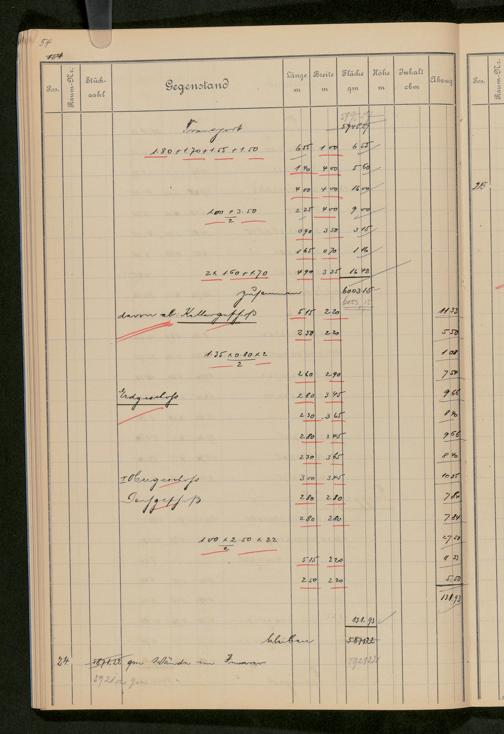 54
Pos. Raum-Nr. Stückzahl Gegenstand Länge m Breite m Fläche qm Höhe m Inhalt cbm Abzug Pos.
Transport
1.80 + 1.70 + 1.55 + 1.50 6 55 1 00 6 55
1 40 4 00 5 60
4 00 4 00 16 00
25
2 25 4 00 9 00
1 00 + 3.50
2
0 90 3 50 3 15
1 65 0 70 1 16
2 x 1 60 + 1 70 4 90 3 35 16 42
Zusammen 6003 15
davon ab Kellergeschoß 5 15 2 20 11 33
2 50 2 20 5 50
1 35 x 0 80 x 2 1 08
2
2 60 2 90 7 54
Erdgeschoß 2 80 3 45 9 66
2 30 3 65 8 40
2 80 3 45 9 66
2 30 3 65 8 40
I Obergeschoß 3 00 3 45 10 35
Dachgeschoß 2 80 2 80 7 84
2 80 2 80 7 84
1 00 x 2 50 x 22 27 50
2
5 15 2 20 11 33
2 50 2 20 5 50
131 93
131 93
bleiben
24 qm Wände im Innern